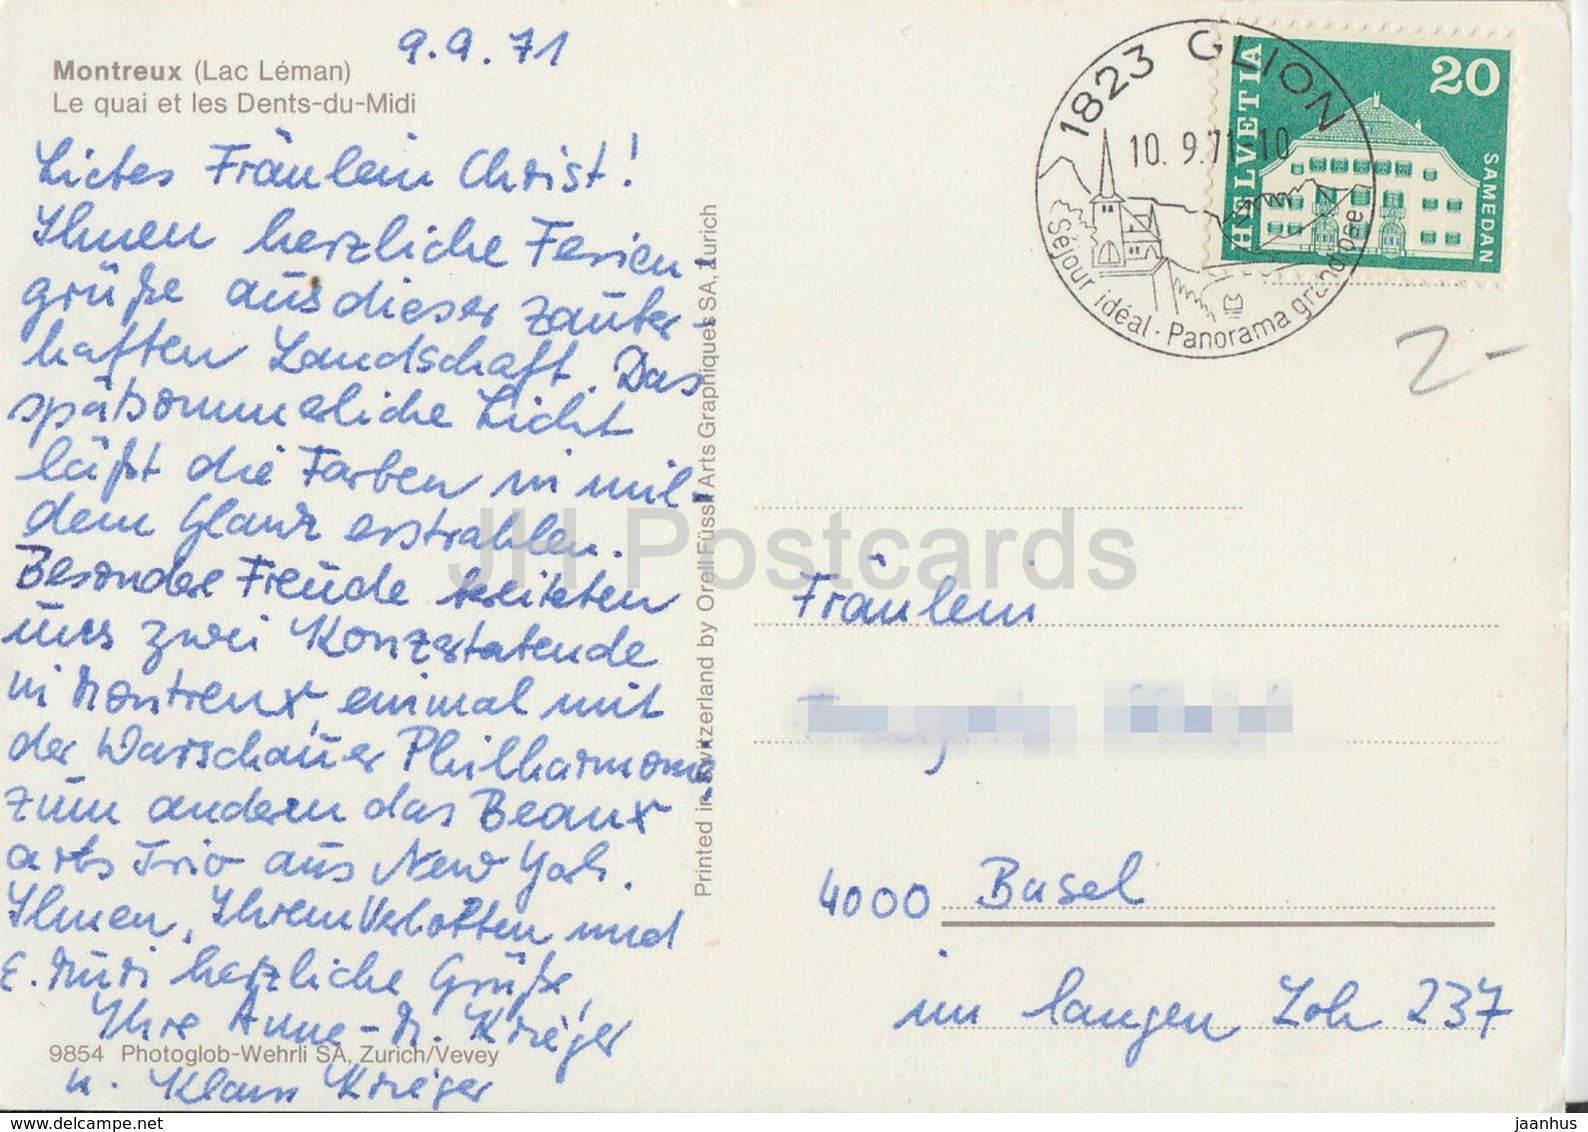 9.9.71
Montreux (Lac Léman)
Le quai et les Dents-du-Midi
Liebes Fräulein Christ!
Ihnen herzliche Ferien-
grüße aus dieser zauber-
haften Landschaft. Das
spätsommerliche Licht
läßt die Farben in mil-
dem Glanz erstrahlen.
Besondere Freude bereiteten
uns zwei Konzertabende
in Montreux, einmal mit
der Warschauer Philharmonie
zum andern das Beaux
arts Trio aus New York.
Ihnen, Ihrem Verlobten und
E. Muri herzliche Grüße,
Ihre Anne-M. Krieger
9854 Photoglob-Wehrli SA, Zurich/Vevey
u. Klaus Krieger
Printed in Switzerland by Orell Füssli Arts Graphiques SA, Zurich
1823 GLION
10.9.71-10
Séjour idéal · Panorama grandiose
HELVETIA
20
SAMEDAN
2-
JH Postcards
Fräulein
4000 Basel
im langen Loh 237
www.delcampe.net
jaanhus